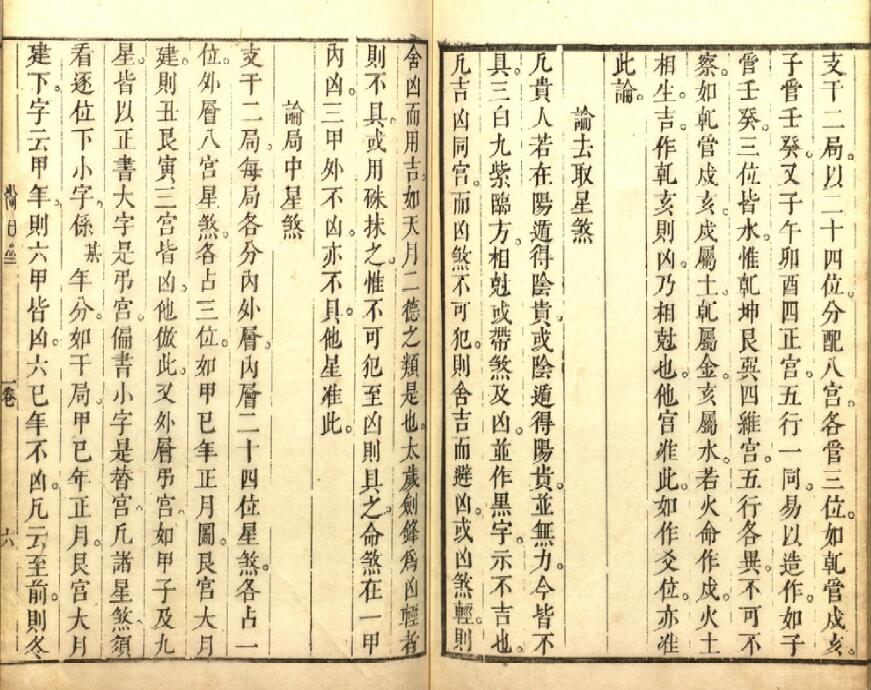 支干二局。以二十四位。分配八宮。各管三位。如乾管戍亥。
子管壬癸。又子午卯酉四正宮。五行一同。易以造作。如子
管壬癸。三位皆水。惟乾坤艮巽四維宮。五行各異。不可不
察。如乾管戍亥。戍屬土。乾屬金。亥屬水。若火命作戍。火土
相生。吉。作乾亥則凶。乃相尅也。他宮准此。如作爻位。亦准
此論。
論去取星煞
凢貴人若在陽遁得陰貴。或陰遁得陽貴。並無力。今皆不
具。三白九紫臨方。相尅或帶煞及凶。並作黑字。示不吉也。
凢吉凶同宮。而凶煞不可犯。則舍吉而避凶。或凶煞輕。則
舍凶而用吉。如天月二德之類是也。太歲劍鋒為凶輕者
則不具。或用硃抹之。惟不可犯至凶則具之。命煞在一甲
內凶。三甲外不凶。亦不具。他星准此。
論局中星煞
支干二局。每局各分內外層。內層二十四位星煞。各占一
位。外層八宮星煞。各占三位。如甲巳年正月圖。艮宮大月
建。則丑艮寅三宮皆凶。他倣此。又外層弔宮。如甲子及九
星。皆以正書大字是弔宮。偏書小字是替宮。凢諸星煞。須
看逐位下小字。係某年分。如干局。甲巳年正月。艮宮大月
建下。字云甲年。則六甲皆凶。六巳年不凶。凢云至前。則冬
卷一
六